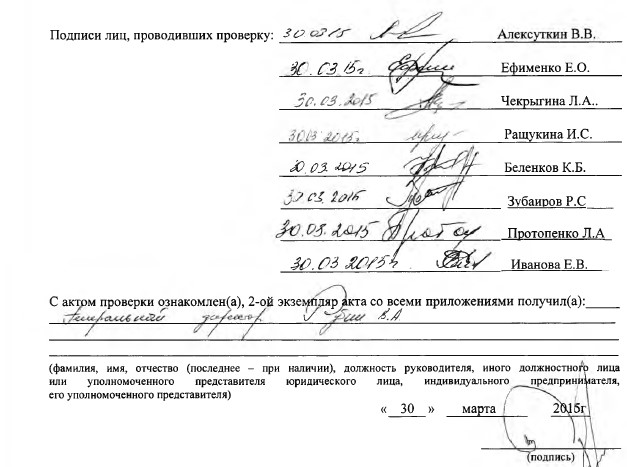 Подписи лиц, проводивших проверку: 30.03.15 Алексуткин В.В.
30.03.15г Ефименко Е.О.
30.03.2015 Чекрыгина Л.А..
30.03.2015 Ращукина И.С.
30.03.2015 Беленков К.Б.
30.03.2015 Зубаиров Р.С
30.03.2015 Протопенко Л.А
30.03.2015г Иванова Е.В.
С актом проверки ознакомлен(а), 2-ой экземпляр акта со всеми приложениями получил(а):
Генеральный директор В.А
(фамилия, имя, отчество (последнее – при наличии), должность руководителя, иного должностного лица
или уполномоченного представителя юридического лица, индивидуального предпринимателя,
его уполномоченного представителя)
« 30 » марта 2015г
(подпись)